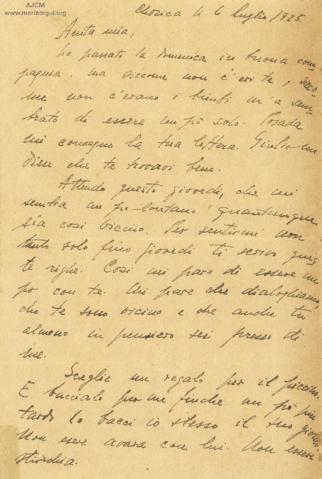 AJCM
www.mariategui.org
Chosica li 6 luglio/925
Anita mia,
ho passato la domenica in buona com
pagnia. Ma siccome non c'eri te, sicco
me non c'erano i bimbi m'a sem
brato di essere un pò solo. Posada
mi consegnò la tua lettera. Giulio mi
disse che te trovavi bene.
Attendo questo giovedì, che mi
sembra un po lontano quantunque
sia così vicino. Per sentirmi non
tanto solo fino giovedì ti scrivo ques
te righe. Così mi pare di essere un
po con te. Mi pare che dialoghiamo,
che te sono vicino e che anche tu
almeno in pensiero sei presso di
me.
Sceglie un regalo per il piccino.
E baccialo per me finchè un pò più
tardi lo bacci io stesso il suo giorno.
Non essere avara con lui. Non essere